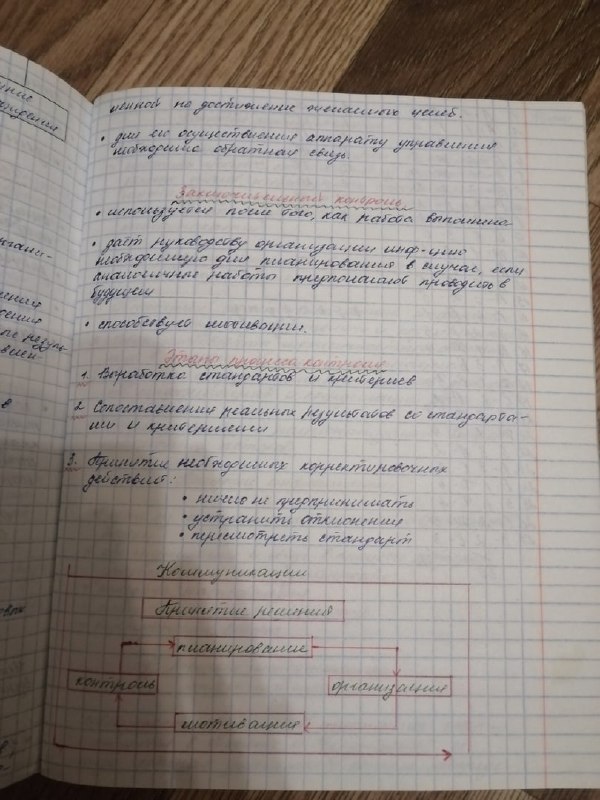 ние
ченной на достижение желаемого
• для его осуществления аппарату управления
необходимо обратная связь.
Заключительный контроль
• используется после того, как работа выполнена
• даёт руководству организации инф-цию
необходимую для планирования в случае, если
аналогичные работы предполагают проводить в
будущем
• способствует мотивации.
Этапы процесса контроля
1. Выработка стандартов и критериев
2. Сопоставления реальных результатов со стандарта-
ми и критериями
3. Принятие необходимых корректировочных
действий:
• ничего не предпринимать
• устранить отклонения
• пересмотреть стандарт
Коммуникации
Принятие решения
планирование
контроль
организация
мотивация